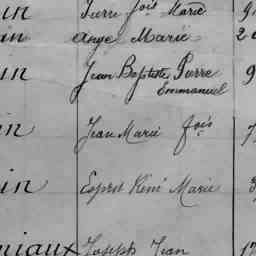 in Pierre fois Marie 9
an Ange Marie 2
in Jean Baptiste Pierre 9
Emmanuel
in Jean Marie fois 7
in Esprit René Marie 3
niaux Joseph Jean 17